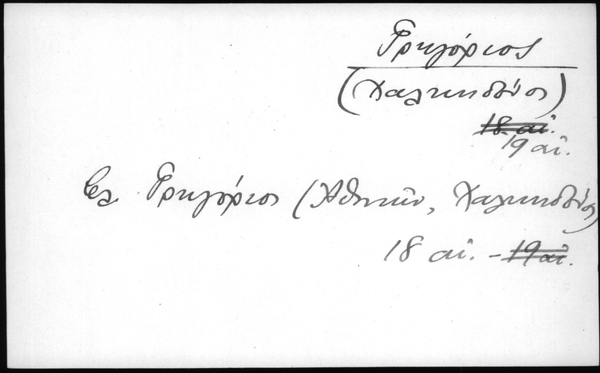 Γρηγόριος
(Χαλκηδόνος)
18 αἰ.
19 αἰ.
βλ. Γρηγόριος (Ἀθηνῶν, Χαλκηδόνος)
18 αἰ. - 19 αἰ.